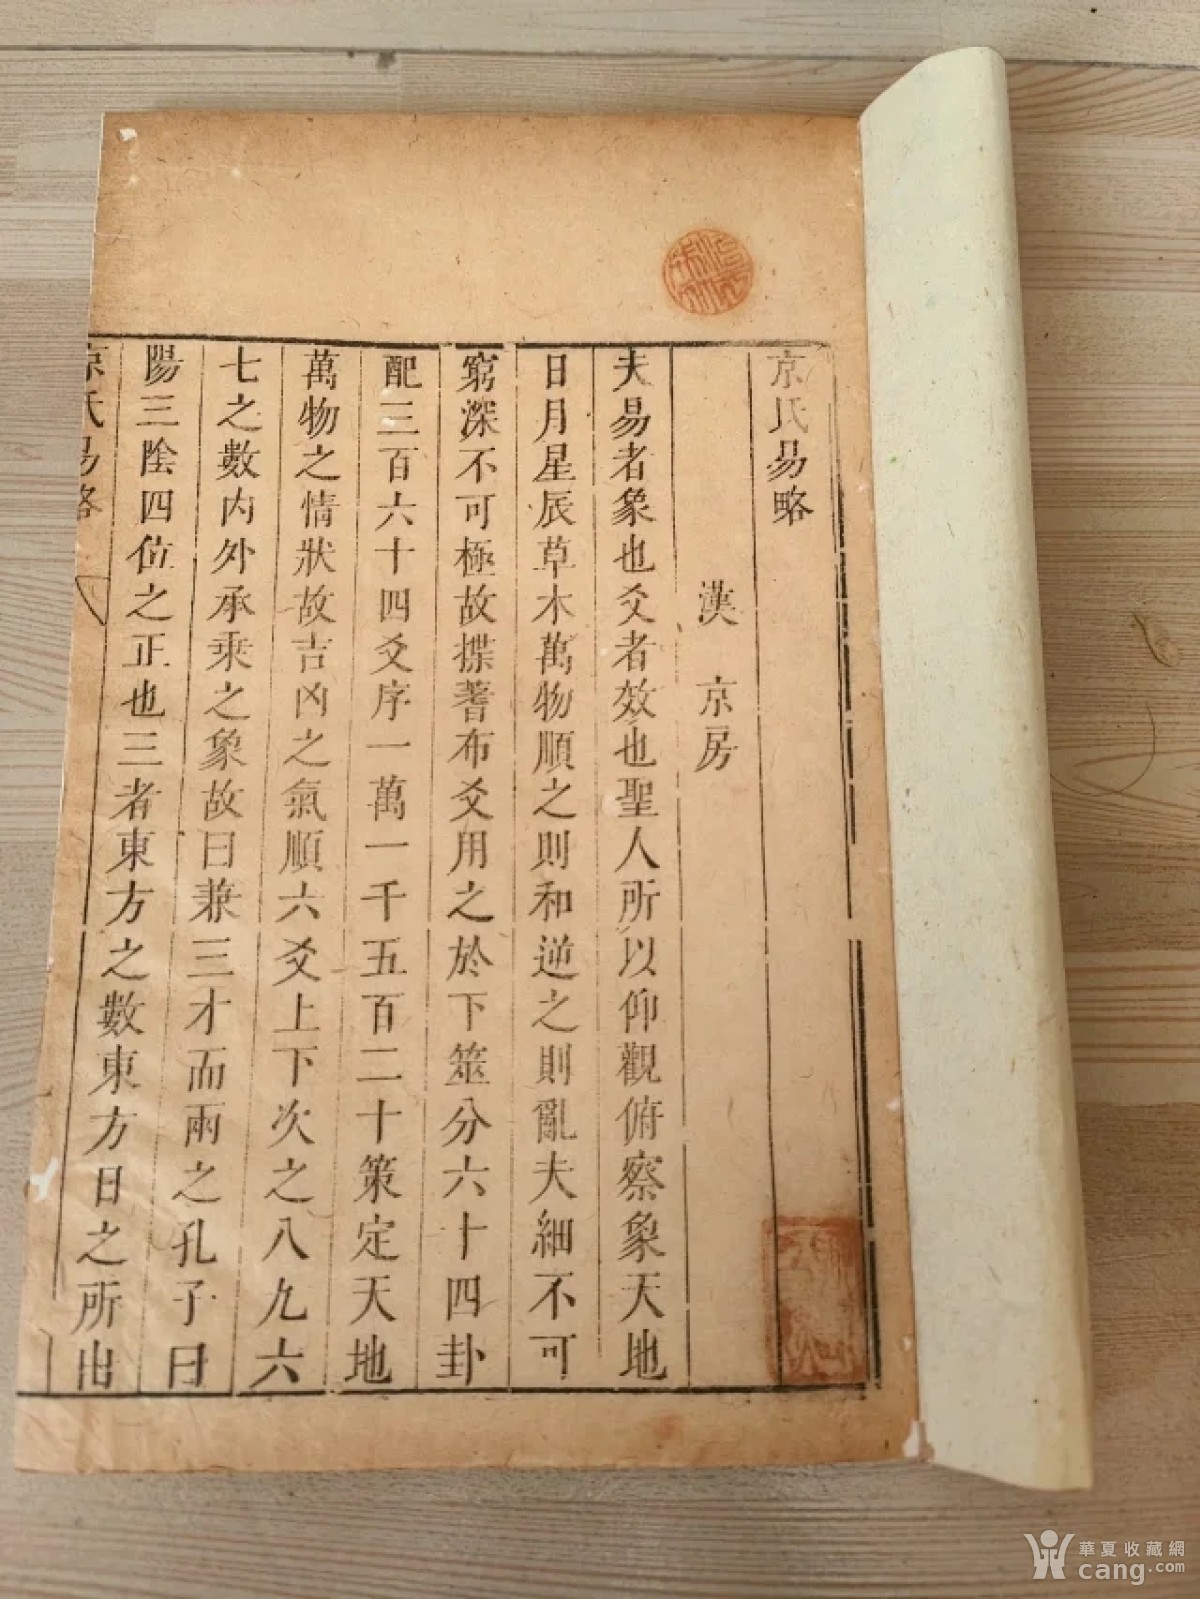 京氏易略
漢　京房
夫易者象也爻者效也聖人所以仰觀俯察象天地
日月星辰草木萬物順之則和逆之則亂夫細不可
窮深不可極故揲蓍布爻用之於下筮分六十四卦
配三百六十四爻序一萬一千五百二十策定天地
萬物之情狀故吉凶之氣順六爻上下次之八九六
七之數內外承乘之象故曰兼三才而兩之孔子曰
陽三陰四位之正也三者東方之數東方日之所出
京氏易略
華夏收藏網
cang.com